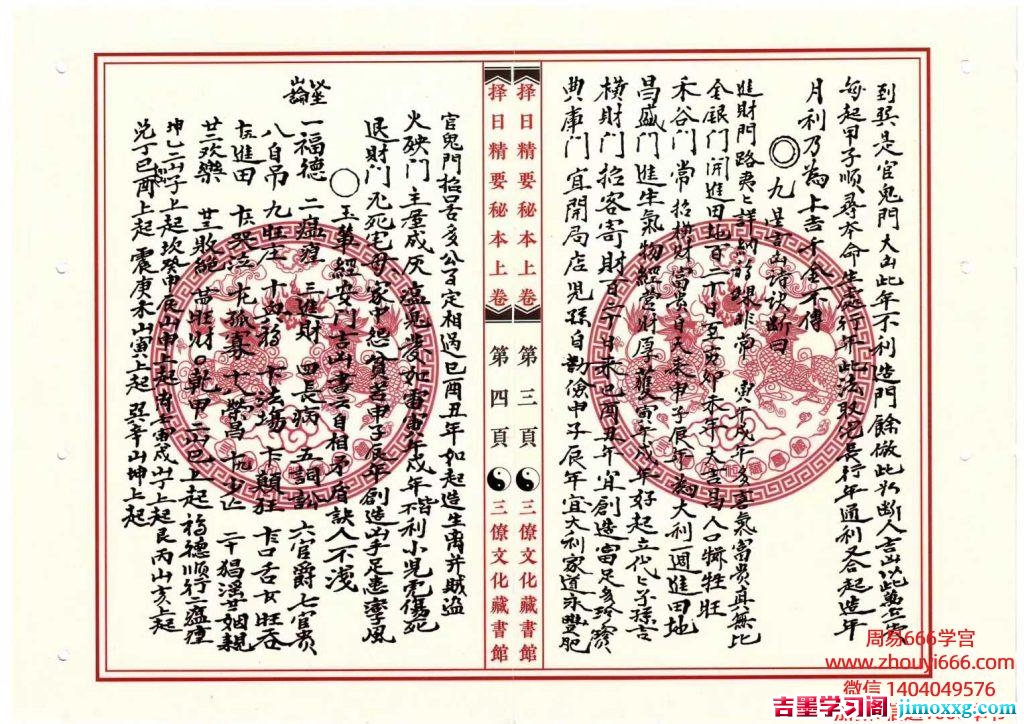 到巽是官鬼門大凶此年不利造門餘倣此以斷人吉凶此萬
每起甲子順尋本命生起行年此法取兄長行年通利各合起造年
月利乃為上吉千金不傳
九星吉凶詩訣斷曰
進財門路輿詳納祿非常 寅午戌年多喜氣富貴真無比
金銀門開進田地百二十日至亥卯未年大吉昌人口犧牲旺
禾谷門 常招橫財富貴自天來申子辰年大利週進田地
昌盛門 進生氣物經營財厚蓄寅午戌年好起立代代子孫言
橫財門 招客寄財百二十日來巳酉丑年宜創造富足多珍
典庫門 宜開局店兒孫自勤儉申子辰年宜大利家道永豐肥
择日精要秘本上卷 第三頁 三僚文化藏書館
择日精要秘本上卷 第四頁 三僚文化藏書館
官鬼門招口舌多公事定相遇巳酉丑年如起造生离并賊盜
火殃門 主屋成灰瘟鬼如雷寅午戌年皆不利小兒虎傷死
退財門 兄死宅母家中怨貧苦申子辰年創造凶手足患瘋
玉輦經安門吉凶書云自相矛盾訣人不淺
坐山論 一福德 二瘟瘟 三進財 四長病 五詞訟 六官爵 七官貴
八自吊 九旺庄 十興福 十一法場 十二顛狂 十三口舌 十四旺蚕
十五進田 十六哭泣 十七孤寡 十八榮昌 十九少亡 二十猖淫 廿一姻親
廿二欢樂 廿三敗絕 廿四旺財 乾甲二山巳上起福德順行二瘟瘟
坤乙二山子上起坎癸申辰山申上起离壬寅戌山上起艮丙山亥上起
兌丁巳酉上起 震庚未山寅上起 巽辛山坤上起
周易666学宫
www.zhouyi666.com
微信 1404049576
吉墨学习阁 jimoxxg.com